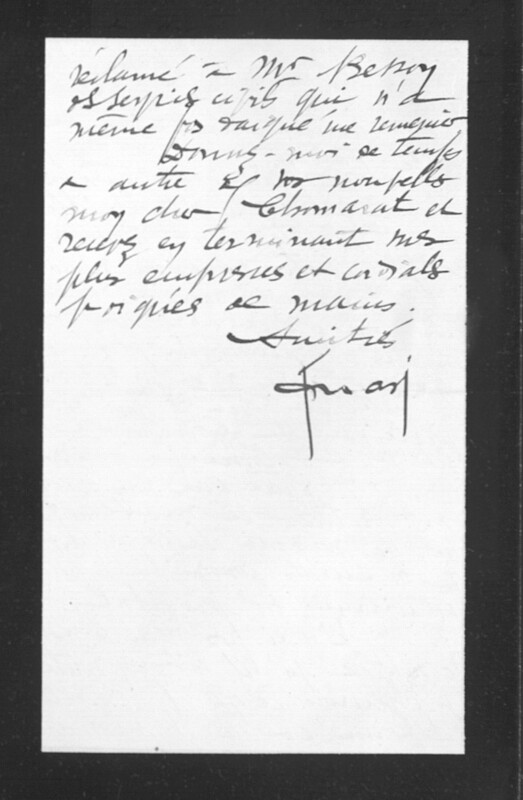 réclamé à Mr Besson
services civils qui n'a
même pas daigné me remercier
Donnez-moi de temps
à autre de vos nouvelles
mon cher Chomarat et
recevez en terminant mes
plus empressés et cordiales
poignées de mains.
Amitiés